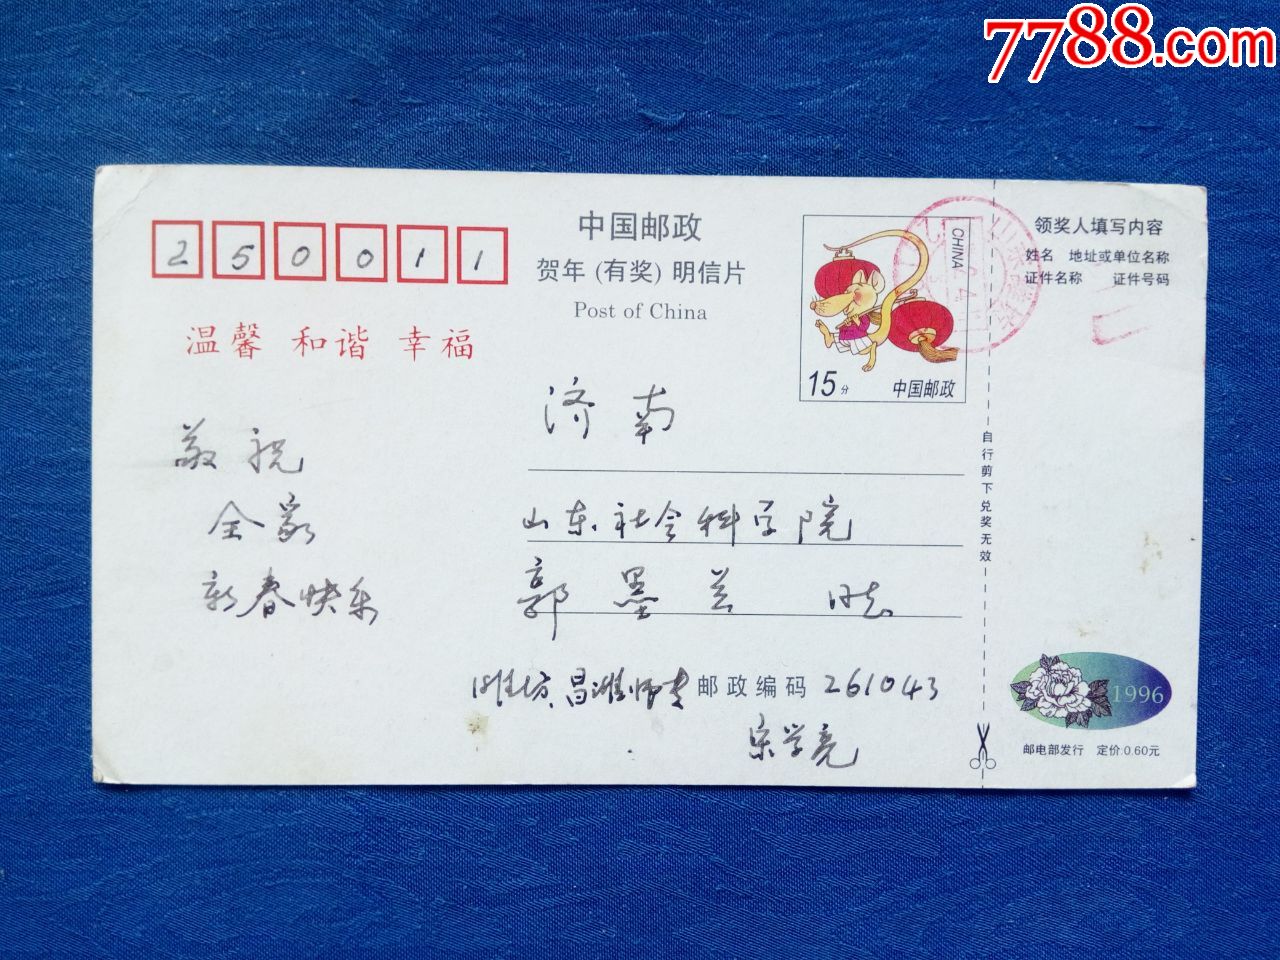 7788.com
250011
中国邮政
贺年(有奖)明信片
Post of China
CHINA
15分
中国邮政
领奖人填写内容
姓名 地址或单位名称
证件名称 证件号码
温馨 和谐 幸福
敬祝
全家
新春快乐
济南
山东社会科学院
郭墨兰 同志
潍坊昌潍师专 邮政编码 261043
宋学亮
自行剪下兑奖无效
1996
邮电部发行 定价:0.60元